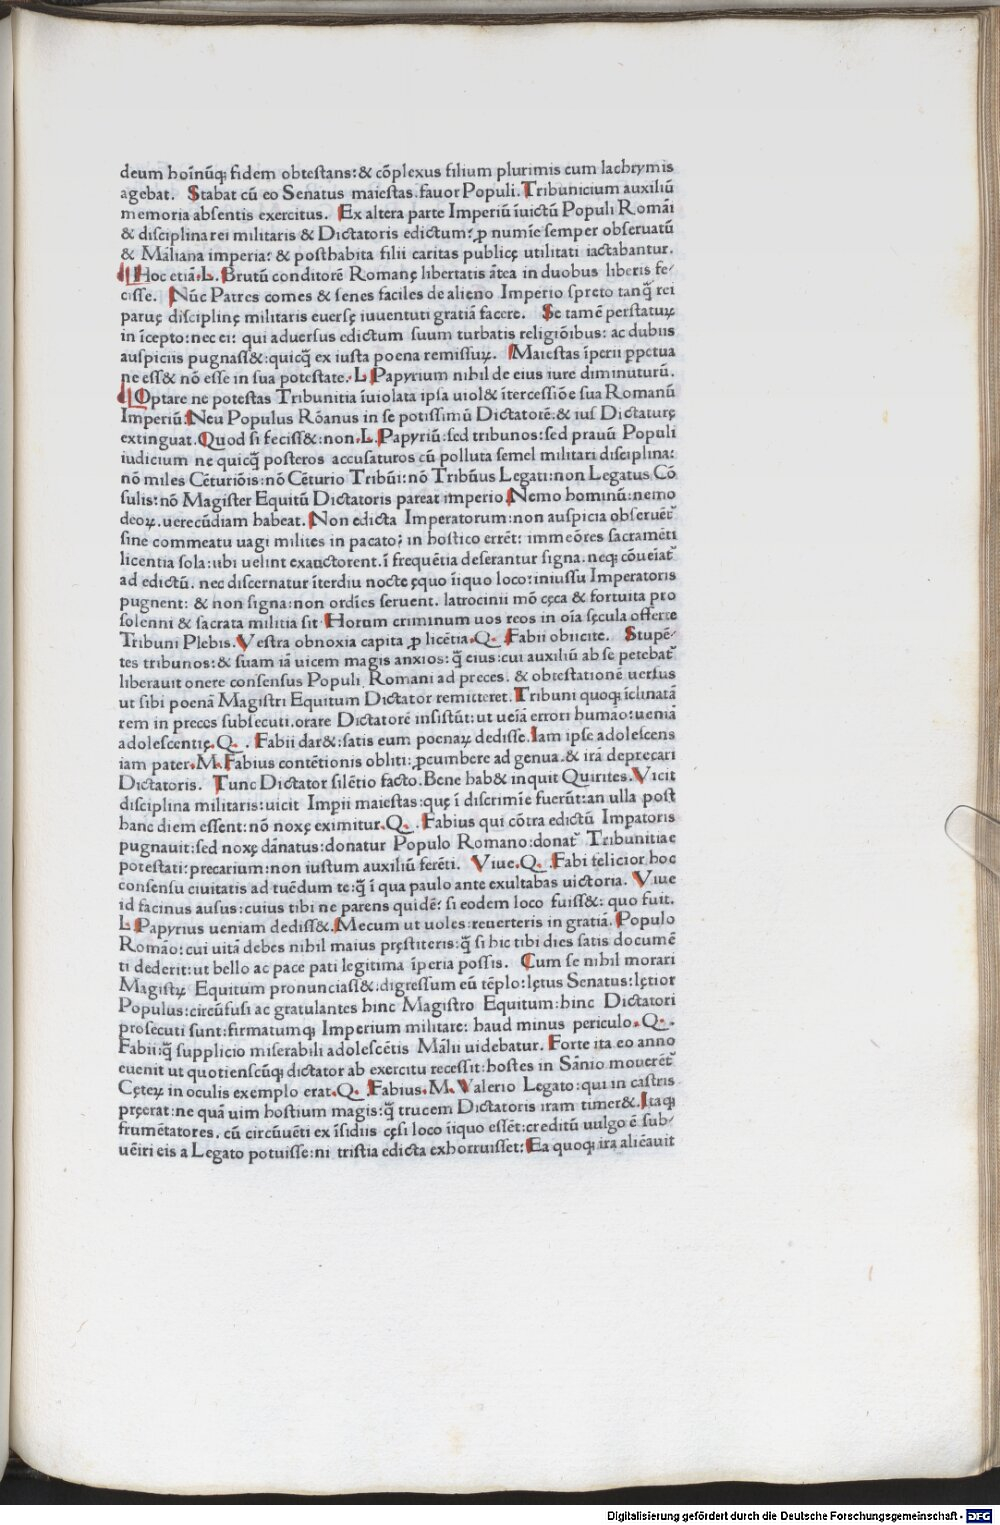 deum hoīnūq; fidem obtestans:& cōplexus filium plurimis cum lachrymis
agebat. Stabat cū eo Senatus maiestas.fauor Populi.Tribunicium auxiliū
memoria absentis exercitus. Ex altera parte Imperiū īuictū Populi Romāi
& disciplina rei militaris & Dictatoris edictum: ꝓ numīe semper obseruatū
& Māliana imperia: & posthabita filii caritas publicę utilitati iactabantur.
Hoc etiā.L.Brutū conditorē Romanę libertatis ātea in duobus liberis fe/
cisse. Nūc Patres comes & senes faciles de alieno Imperio spreto tanq̄ rei
paruę disciplinę militaris euersę iuuentuti gratiā facere. Se tamē perstatuꝝ
in īcepto:nec ei: qui aduersus edictum suum turbatis religiōibus: ac dubiis
auspiciis pugnass&:quicq̄ ex iusta poena remissuꝝ. Maiestas īperii ppetua
ne ess& nō esse in sua potestate.L Papyrium nihil de eius iure diminuturū.
Optare ne potestas Tribunitia īuiolata ipsa uiol& ītercessiōe sua Romanū
Imperiū:Neu Populus Rōanus in se potissimū Dictatorē:& ius Dictaturę
extinguat.Quod si feciss&:non.L.Papyriū:sed tribunos:sed prauū Populi
iudicium ne quicq̄ posteros accusaturos cū polluta semel militari disciplina:
nō miles Cēturiōis:nō Cēturio Tribūi:nō Tribūus Legati:non Legatus Cō
sulis:nō Magister Equitū Dictatoris pareat imperio.Nemo hominū:nemo
deoꝝ.uerecūdiam habeat. Non edicta Imperatorum:non auspicia obseruēt̄
sine commeatu uagi milites in pacato: in hostico errēt: immeōres sacramēti
licentia sola:ubi uelint exauctorent.ī frequētia deserantur signa.neq; cōueiat̄
ad edictū. nec discernatur īterdiu nocte ęquo īiquo loco:iniussu Imperatoris
pugnent: & non signa:non ordīes seruent. latrocinii mō cęca & fortuita pro
solenni & sacrata militia sit Horum criminum uos reos in oīa sęcula offerte
Tribuni Plebis.Vestra obnoxia capita ꝓ licētia.Q. Fabii obiicite. Stupē/
tes tribunos:& suam iā uicem magis anxios: q̄ eius:cui auxiliū ab se petebat̄
liberauit onere consensus Populi Romani ad preces. & obtestationē uersus
ut sibi poenā Magistri Equitum Dictator remitteret.Tribuni quoq; īclinatā
rem in preces subsecuti.orare Dictatorē insistūt:ut ueīā errori humāo:ueniā
adolescentię.Q. . Fabii dar&:satis eum poenaꝝ dedisse.Iam ipse adolescens
iam pater.M.Fabius contētionis obliti:ꝓcumbere ad genua.& irā deprecari
Dictatoris. Tunc Dictator silētio facto.Bene hab& inquit Quirites.Vicit
disciplina militaris:uicit Impii maiestas:quę ī discrimīe fuerūt:an ulla post
hanc diem essent:nō noxę eximitur.Q. .Fabius qui cōtra edictū Impatoris
pugnauit:sed noxę dānatus:donatur Populo Romano:donat̄ Tribunitiae
potestati:precarium:non iustum auxiliū ferēti. Viue.Q. .Fabi felicior hoc
consensu ciuitatis ad tuēdum te:q̄ ī qua paulo ante exultabas uictoria. Viue
id facinus ausus:cuius tibi ne parens quidē: si eodem loco fuiss&: quo fuit.
L Papyrius ueniam dediss&.Mecum ut uoles:reuerteris in gratiā. Populo
Romāo:cui uitā debes nihil maius pręstiteris:q̄ si hic tibi dies satis documē
ti dederit:ut bello ac pace pati legitima īperia possis. Cum se nihil morari
Magistꝝ Equitum pronunciass&:digressum eū tēplo:lętus Senatus:lętior
Populus:circūfusi ac gratulantes hinc Magistro Equitum:hinc Dictatori
prosecuti sunt:firmatumq; Imperium militare: haud minus periculo.Q. .
Fabii:q̄ supplicio miserabili adolescētis Mālii uidebatur. Forte ita eo anno
euenit ut quotienscūq; dictator ab exercitu recessit:hostes in Sānio mouerēt̄
Cęteꝝ in oculis exemplo erat.Q. .Fabius.M.Valerio Legato:qui in castris
pręerat:ne quā uim hostium magis:q̄ trucem Dictatoris iram timer&.Itaq;
frumētatores. cū circūuēti ex īsidiis cęsi loco īiquo essēt:creditū uulgo ē sub/
uēiri eis a Legato potuisse:ni tristia edicta exhorruisset: Ea quoq; ira aliēauit
Digitalisierung gefördert durch die Deutsche Forschungsgemeinschaft - DFG